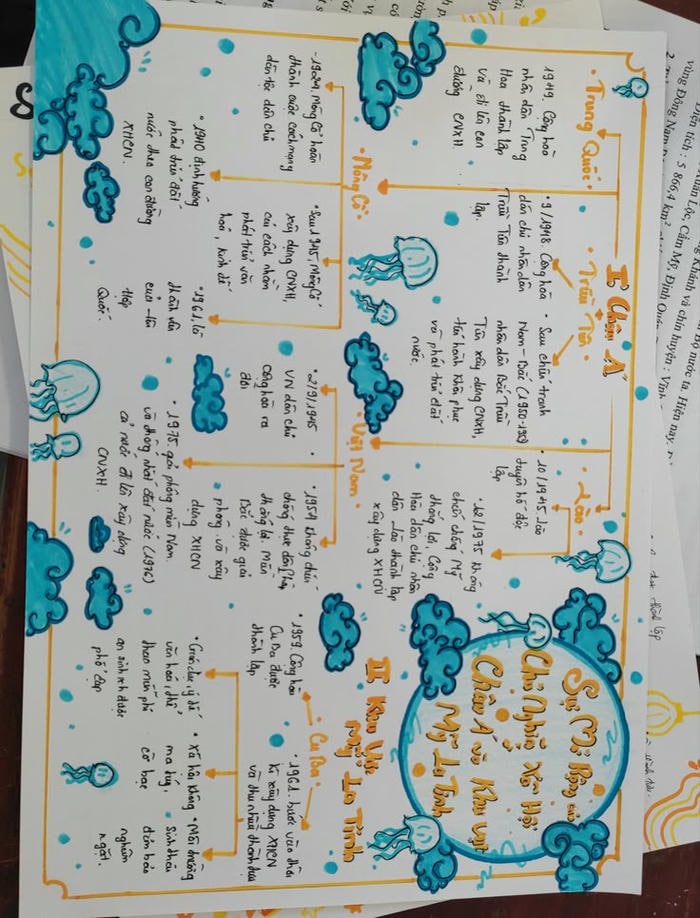 Sự Mở Rộng của
Chủ Nghĩa Xã Hội
Châu Á và Khu vực
Mỹ La Tinh
I. Châu Á
• Trung Quốc •
1949. Cộng hoà
nhân dân Trung
Hoa thành lập
và đi lên con
đường CNXH.
• Triều Tiên •
• 9/1948. Cộng hoà
dân chủ nhân dân
Triều Tiên thành
lập.
• Sau chiến tranh
Nam - Bắc (1950-1953)
nhân dân Bắc Triều
Tiên xây dựng CNXH,
tiến hành khôi phục
và phát triển đất
nước.
• Lào •
• 10/1945. Lào
tuyên bố độc
lập
• 12/1975 kháng
chiến chống Mỹ
thắng lợi, Cộng
Hòa dân chủ
dân Lào thành lập
xây dựng XHCN
• Mông Cổ •
- 1924. Mông Cổ hoàn
thành cuộc cách mạng
dân tộc dân chủ
• 1940 định hướng
phát triển đất
nước theo con đường
XHCN.
• Sau 1945, Mông Cổ
xây dựng CNXH,
cải cách nhằm
phát triển văn
hoá, kinh tế
• 1961. là
thành viên
của
hợp
Quốc.
• Việt Nam •
• 2/9/1945
VN dân chủ
cộng hoà ra
đời
• 1954 kháng chiến
chống thực dân Pháp
thắng lợi. Miền
Bắc được giải
phóng. và xây
dựng XHCN
• 1975. giải phóng miền Nam.
và thống nhất đất nước (1976)
cả nước đi lên xây dựng
CNXH.
II. Khu Vực
Mỹ La Tinh
• Cu Ba •
• 1959. Cộng hòa
Cu Ba được
thành lập
• 1961. bước vào thời
kì xây dựng XHCN
và thu nhiều thành tựu
• Giáo dục, y tế
văn hoá, thể
thao miễn phí
an sinh xh được
phổ cập
• Xã hội không
ma túy,
cờ bạc
• Môi trường
Sinh thái
đảm bảo
nghiêm
ngặt.